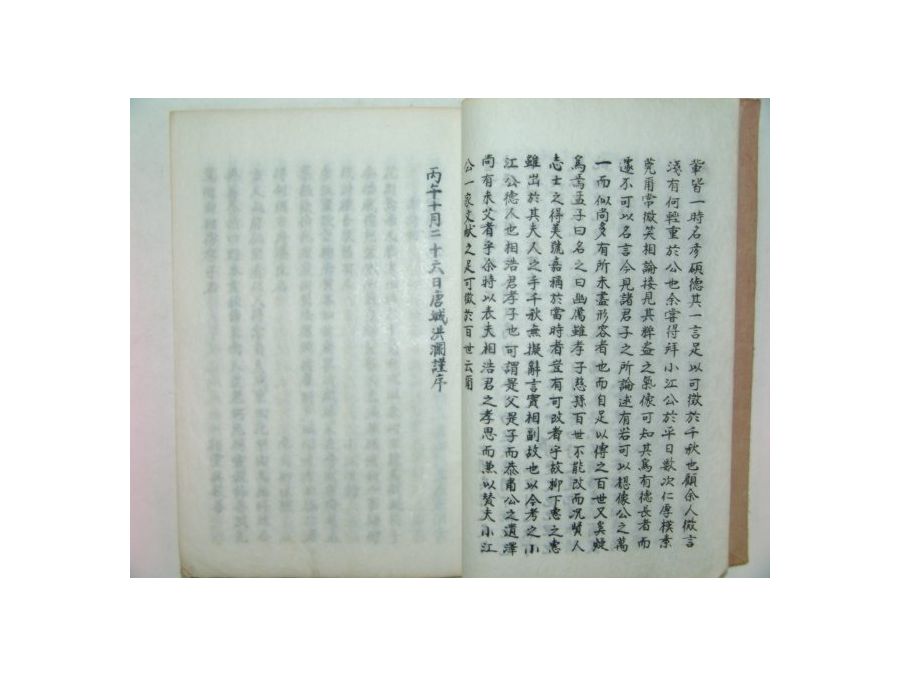 輩皆一時名彦碩德其一言足以可徵於千秋也顧余人微言
淺有何輕重於公也余嘗得拜小江公於平日數次仁厚樸素
莞爾常微笑相論接見其粹盎之氣像可知其爲有德長者而
遽不可以名言今見諸君子之所論述有若可以想像公之萬
一而似尚多有所未盡形容者也而自足以傳之百世又奚疑
爲焉孟子曰名之曰幽厲雖孝子慈孫百世不能改而況賢人
志士之得美號嘉稱於當時者豈有可改者乎故柳下惠之惠
雖出於其夫人之手千秋無擬辭言實相副故也以今考之小
江公德人也相浩君孝子也可謂是父是子而恭肅公之遺澤
尚有未艾者乎余時以表夫相浩君之孝思而兼以贊夫小江
公一家文献之足可徵於百世云爾
丙午十月二十六日唐城洪瀾謹序